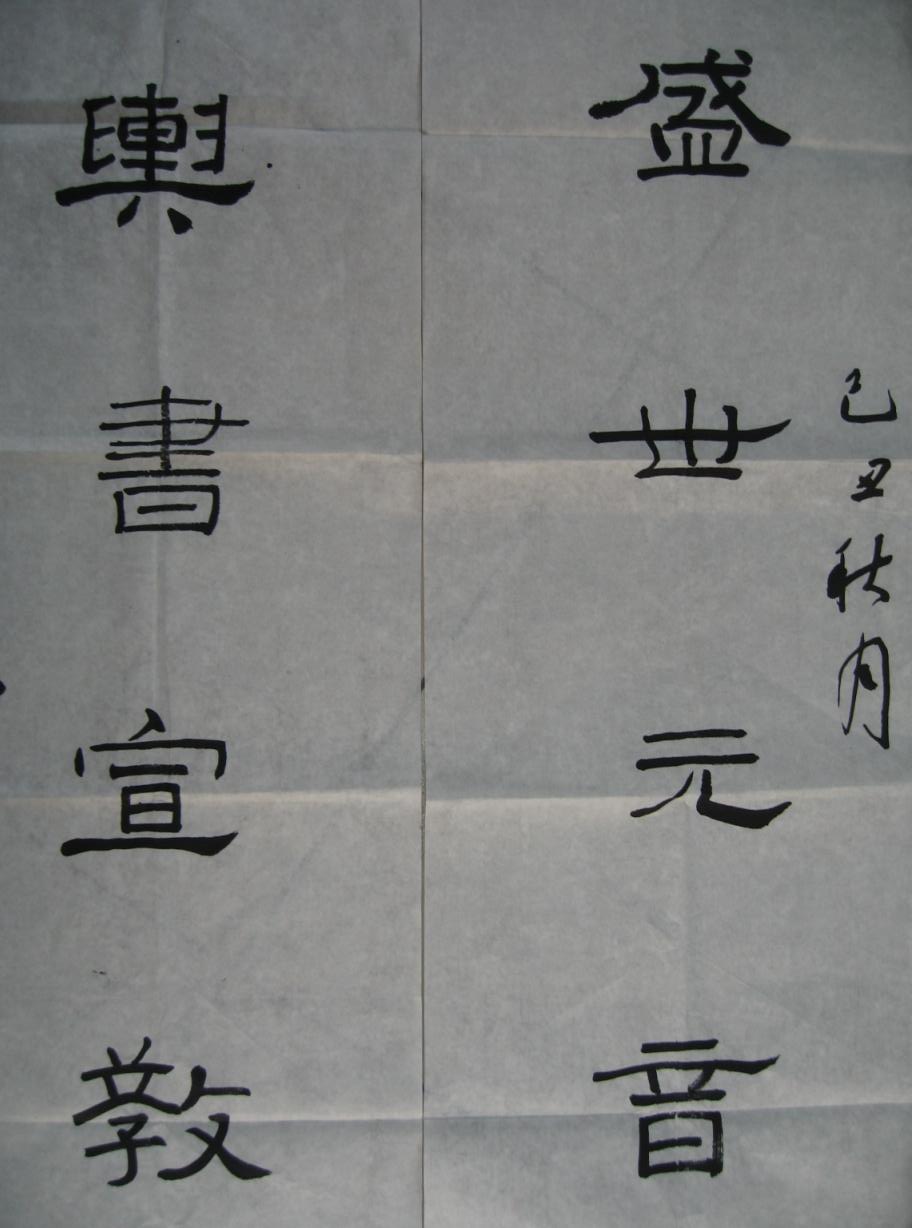 己丑秋月
盛世元音
輿書宣教